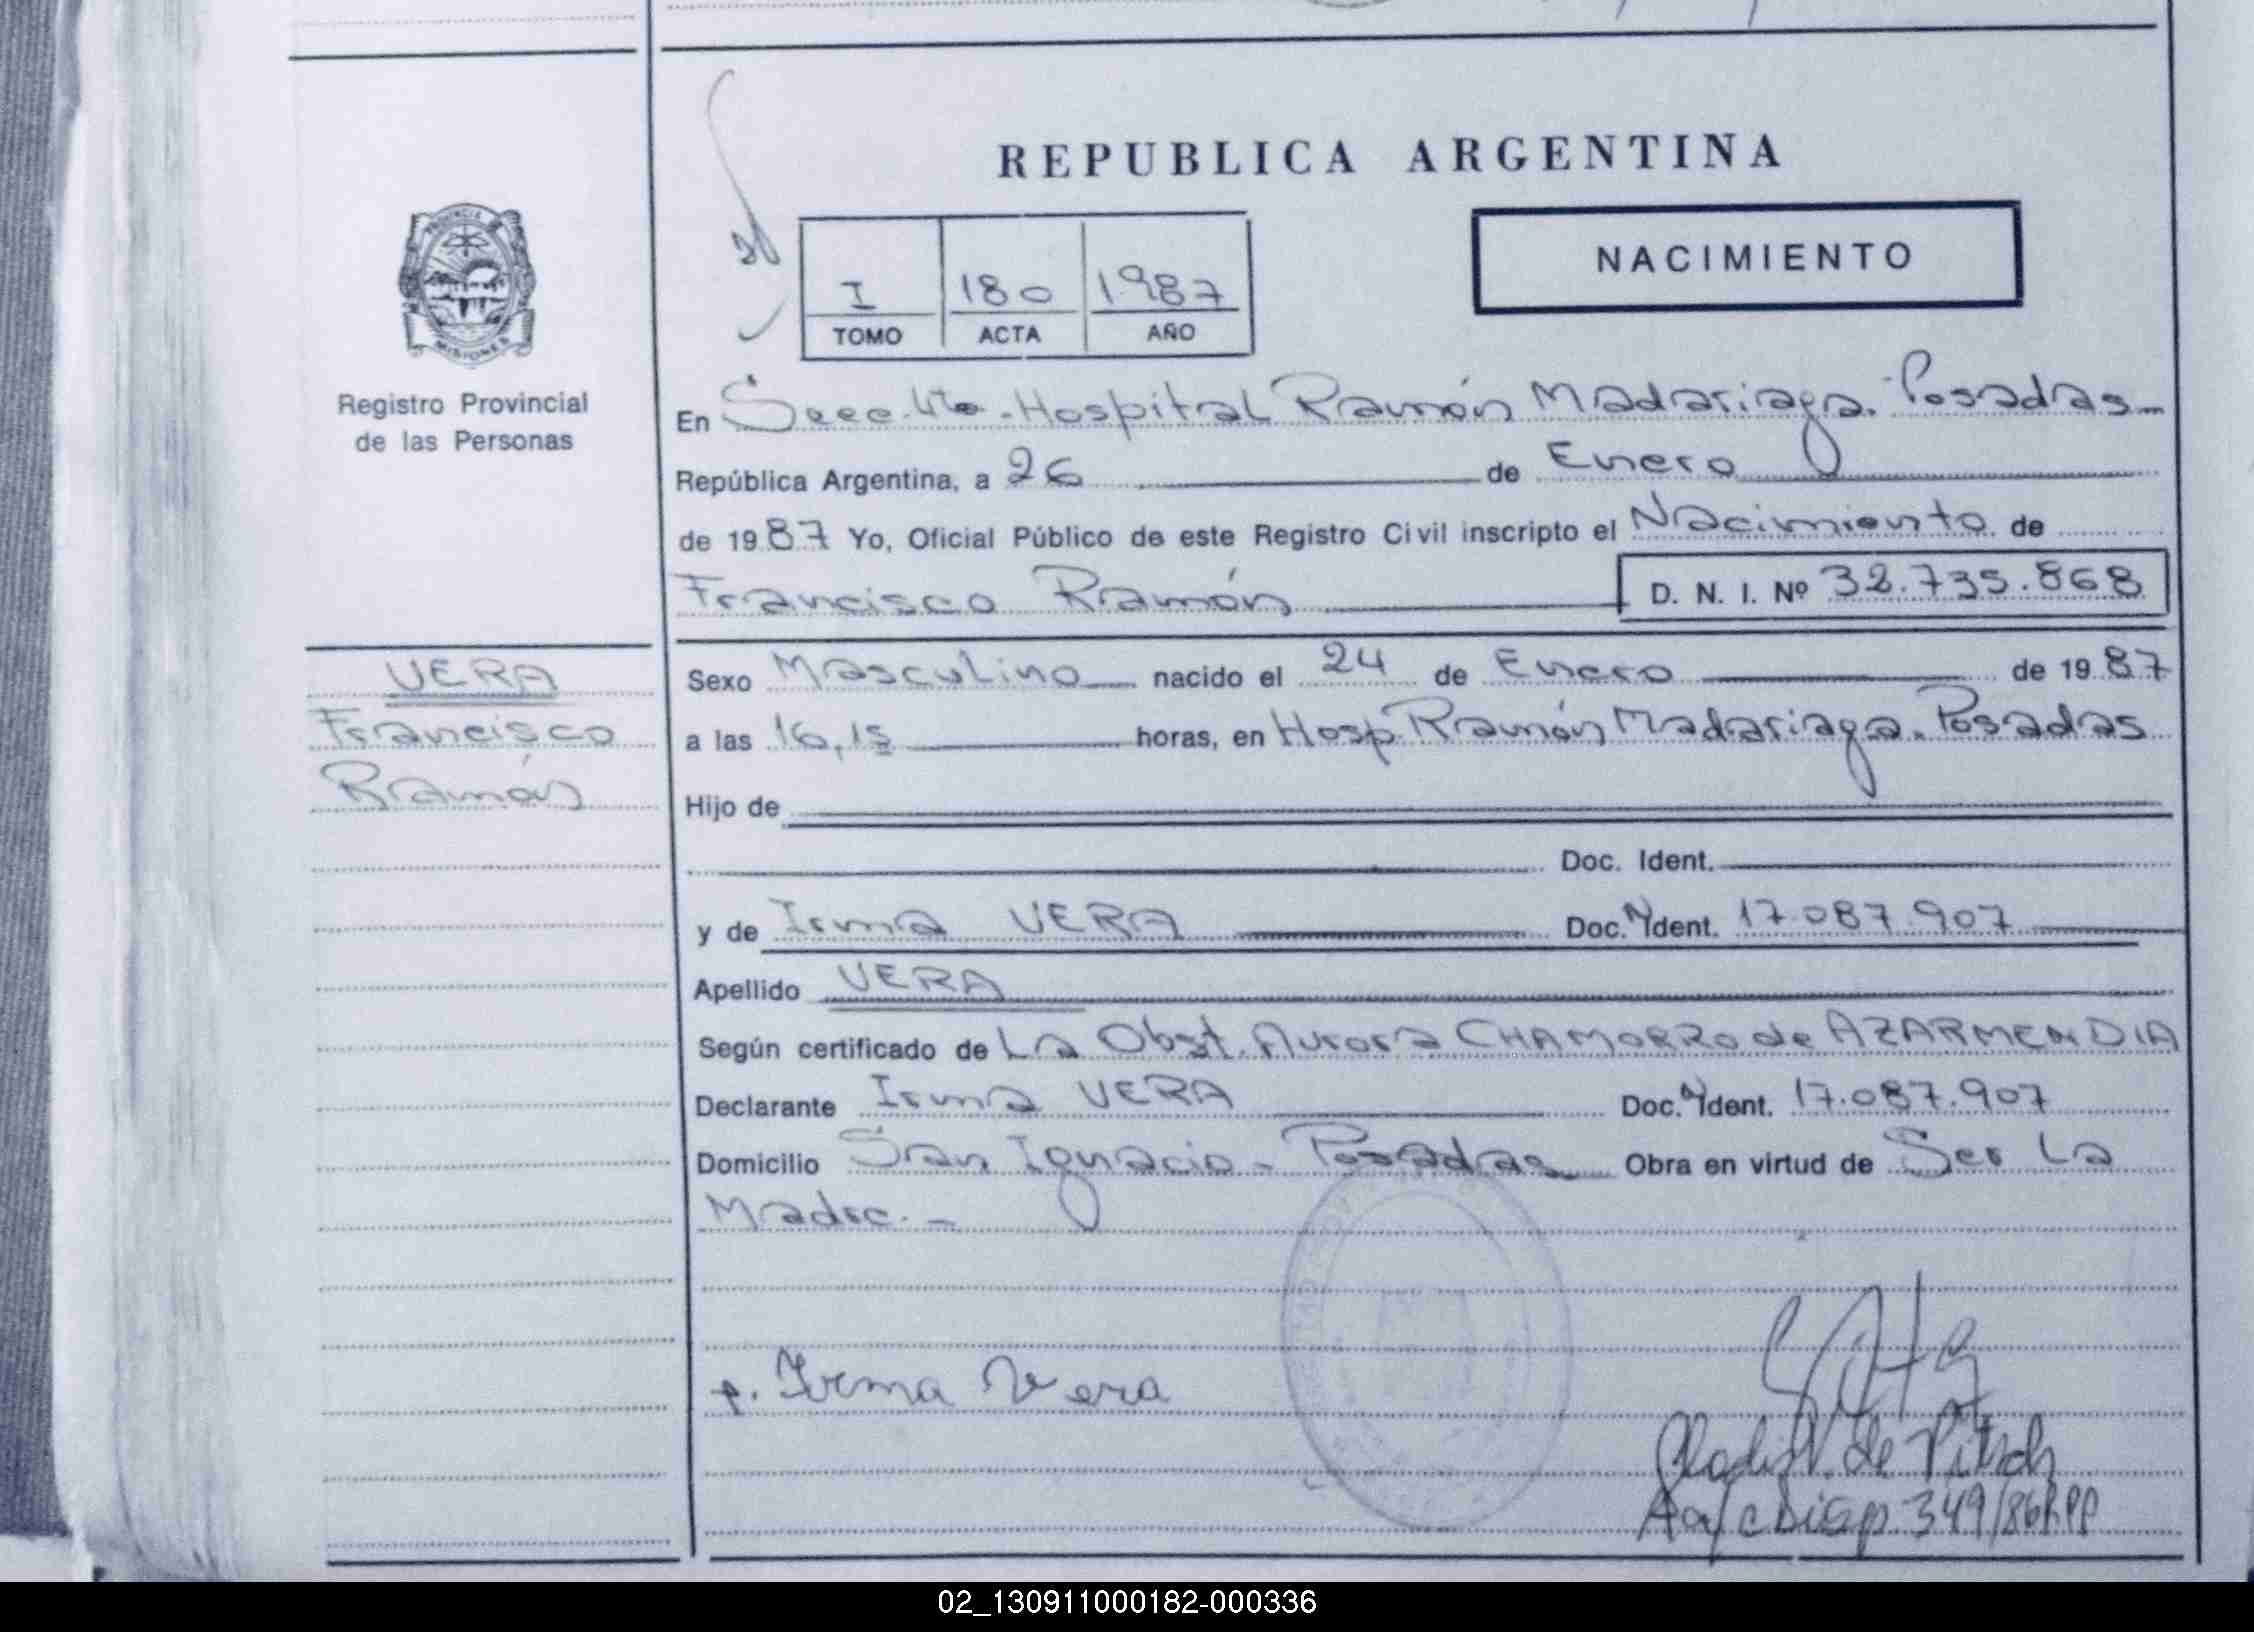 REPUBLICA ARGENTINA
PROVINCIA DE
MISIONES
Registro Provincial
de las Personas
I 180 1987
TOMO ACTA AÑO
NACIMIENTO
En Secc. 4ta. Hospital Ramón Madariaga. Posadas
República Argentina, a 26 de Enero
de 1987 Yo, Oficial Público de este Registro Civil inscripto el Nacimiento de
Francisco Ramón D. N. I. Nº 32.735.868
VERA
Francisco
Ramón
Sexo Masculino nacido el 24 de Enero de 1987
a las 16,15 horas, en Hosp. Ramón Madariaga. Posadas
Hijo de
Doc. Ident.
y de Irma VERA Doc. Ident. 17.087.907
Apellido VERA
Según certificado de La Obst. Aurora CHAMORRO de AZARMENDIA
Declarante Irma VERA Doc. Ident. 17.087.907
Domicilio San Ignacio - Posadas Obra en virtud de Ser La
Madre. -
p. Irma Vera
de
A a/c Disp 349/86
02_130911000182-000336